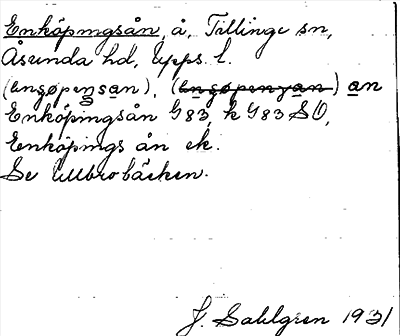 Enköpingsån, å, Tillinge sn,
Åsunda hd, Upps. l.
(ęnҙøpeŋsan), (ęnҙøpeŋsan) an
Enköpingsån G83, k G83 SO,
Enköpings ån ek.
Se Lillbrobäcken.
J. Sahlgren 1931